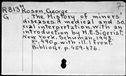 R813 Rosen George
G The History of miners'
diseases. A medical and so-
cial interpretation. with an
introduction by H.E.Sigerist.
New York, Schuman, 1943.
8° 490p. with ill. front.
Bibliogr. p. 459-476.